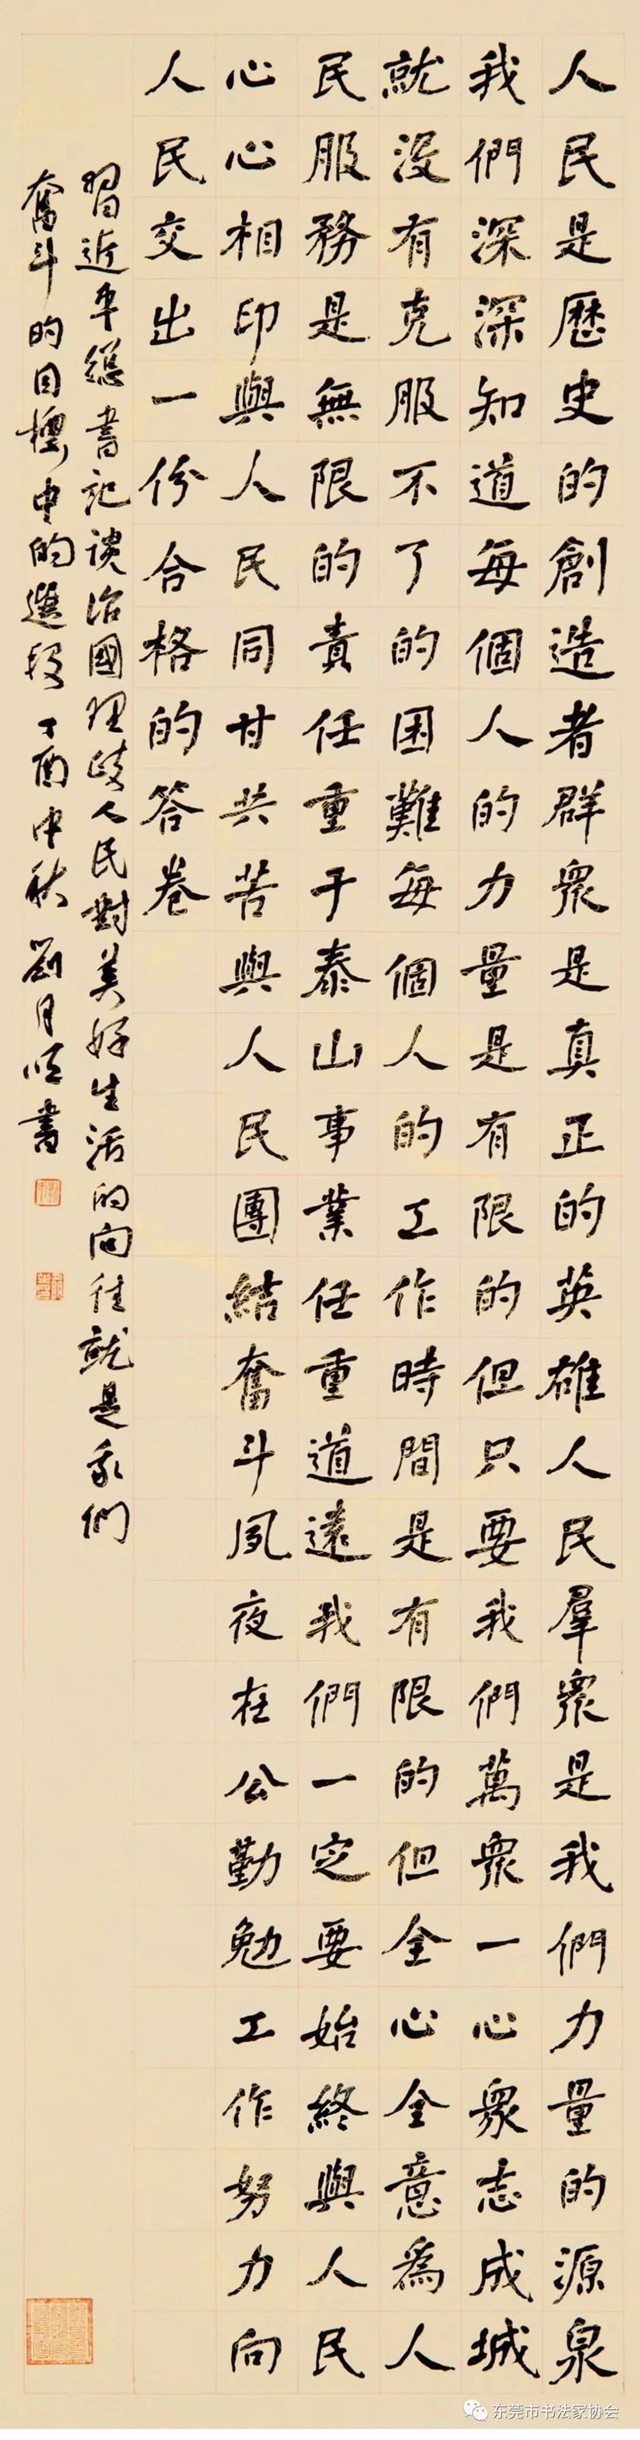 人民是歷史的創造者群眾是真正的英雄人民羣眾是我們力量的源泉
我們深深知道每個人的力量是有限的但只要我們萬眾一心眾志成城
就沒有克服不了的困難每個人的工作時間是有限的但全心全意為人
民服務是無限的責任重于泰山事業任重道遠我們一定要始終與人民
心心相印與人民同甘共苦與人民團結奮斗夙夜在公勤勉工作努力向
人民交出一份合格的答卷
習近平總書記談治國理政人民對美好生活的向往就是我們
奮斗的目標中的選段丁酉中秋劉月書
东莞市书法家协会